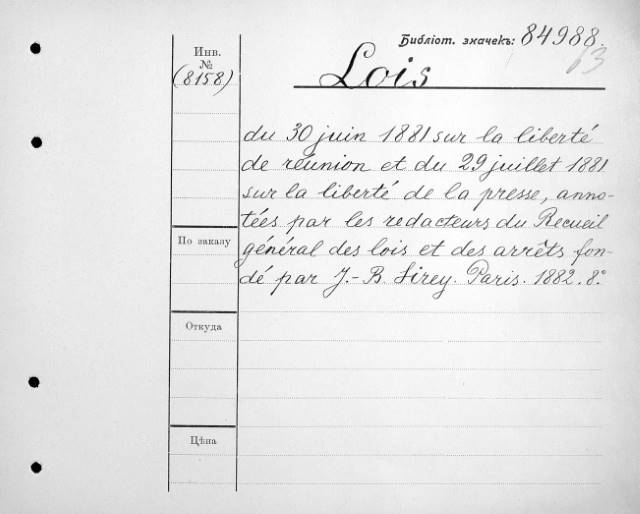 Библіот. значекъ: 84988.
63
Инв.
№
(8158)
Lois
du 30 juin 1881 sur la liberté
de réunion et du 29 juillet 1881
sur la liberté de la presse, anno-
tées par les redacteurs du Recueil
général des lois et des arrêts fon-
dé par J.-B. Sirey. Paris. 1882. 8°.
По заказу
Откуда
Цѣна